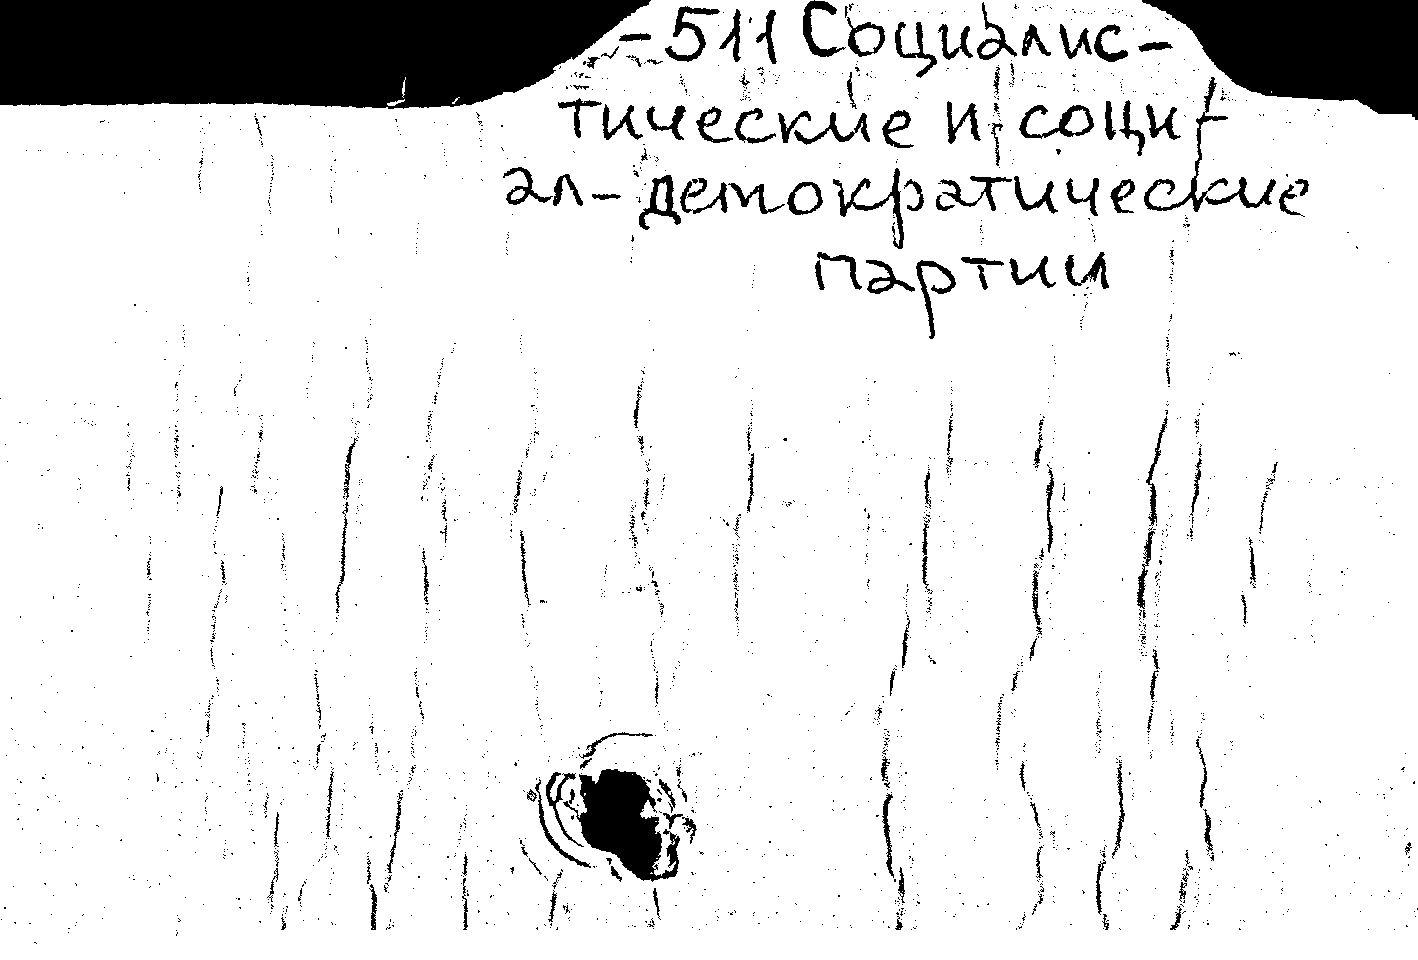 -511 Социалис-
тические и соци-
ал-демократические
партии